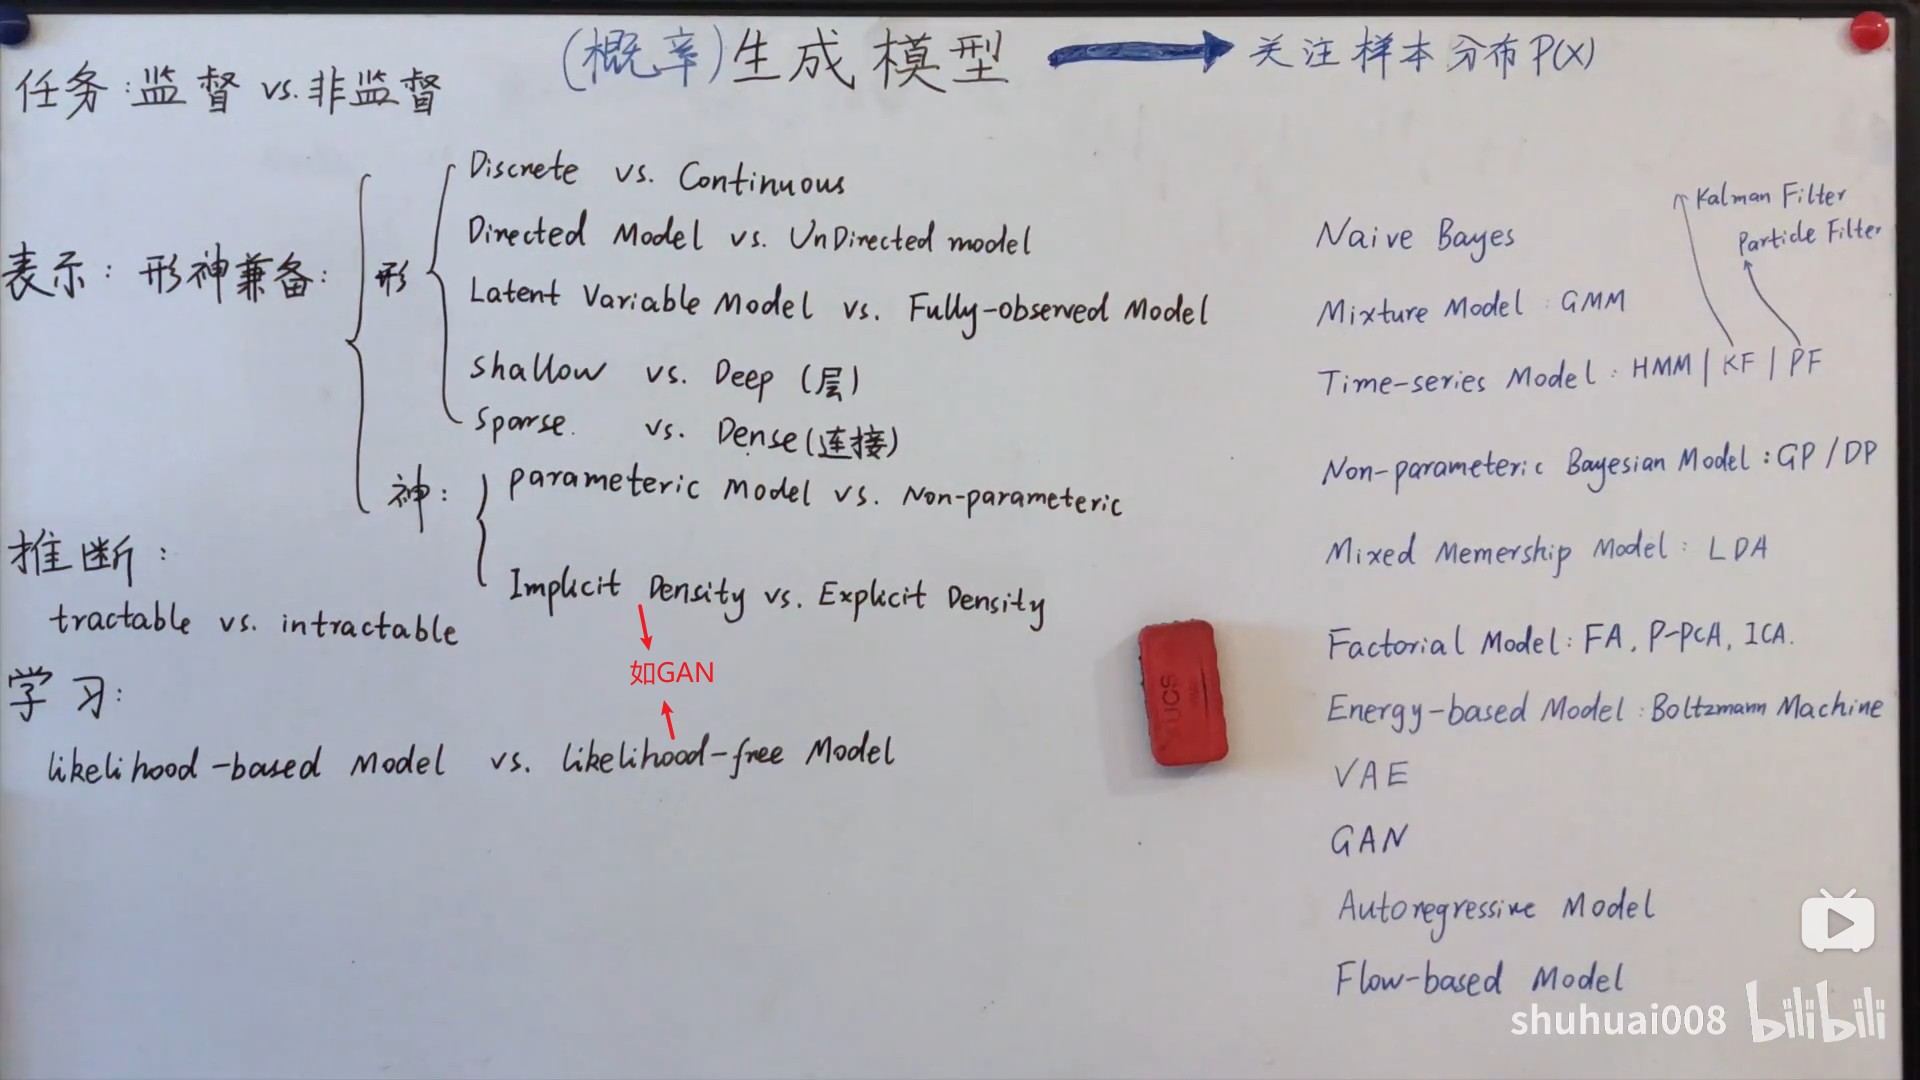 (概率)生成模型 → 关注样本分布P(X)
任务:监督 vs.非监督
表示:形神兼备:
形
Discrete vs. Continuous
Directed Model vs. UnDirected model
Latent Variable Model vs. Fully-observed Model
Shallow vs. Deep (层)
Sparse. vs. Dense(连接)
神:
parameteric Model vs. Non-parameteric
Implicit Density vs. Explicit Density
如GAN
推断:
tractable vs. intractable
学习:
likelihood-based Model vs. likelihood-free Model
Kalman Filter
Particle Filter
Naive Bayes
Mixture Model : GMM
Time-series Model : HMM | KF | PF
Non-parameteric Bayesian Model : GP / DP
Mixed Memership Model : LDA
Factorial Model : FA, P-PCA, ICA.
Energy-based Model : Boltzmann Machine
VAE
GAN
Autoregressive Model
Flow-based Model
UCS
shuhuai008 bilibili